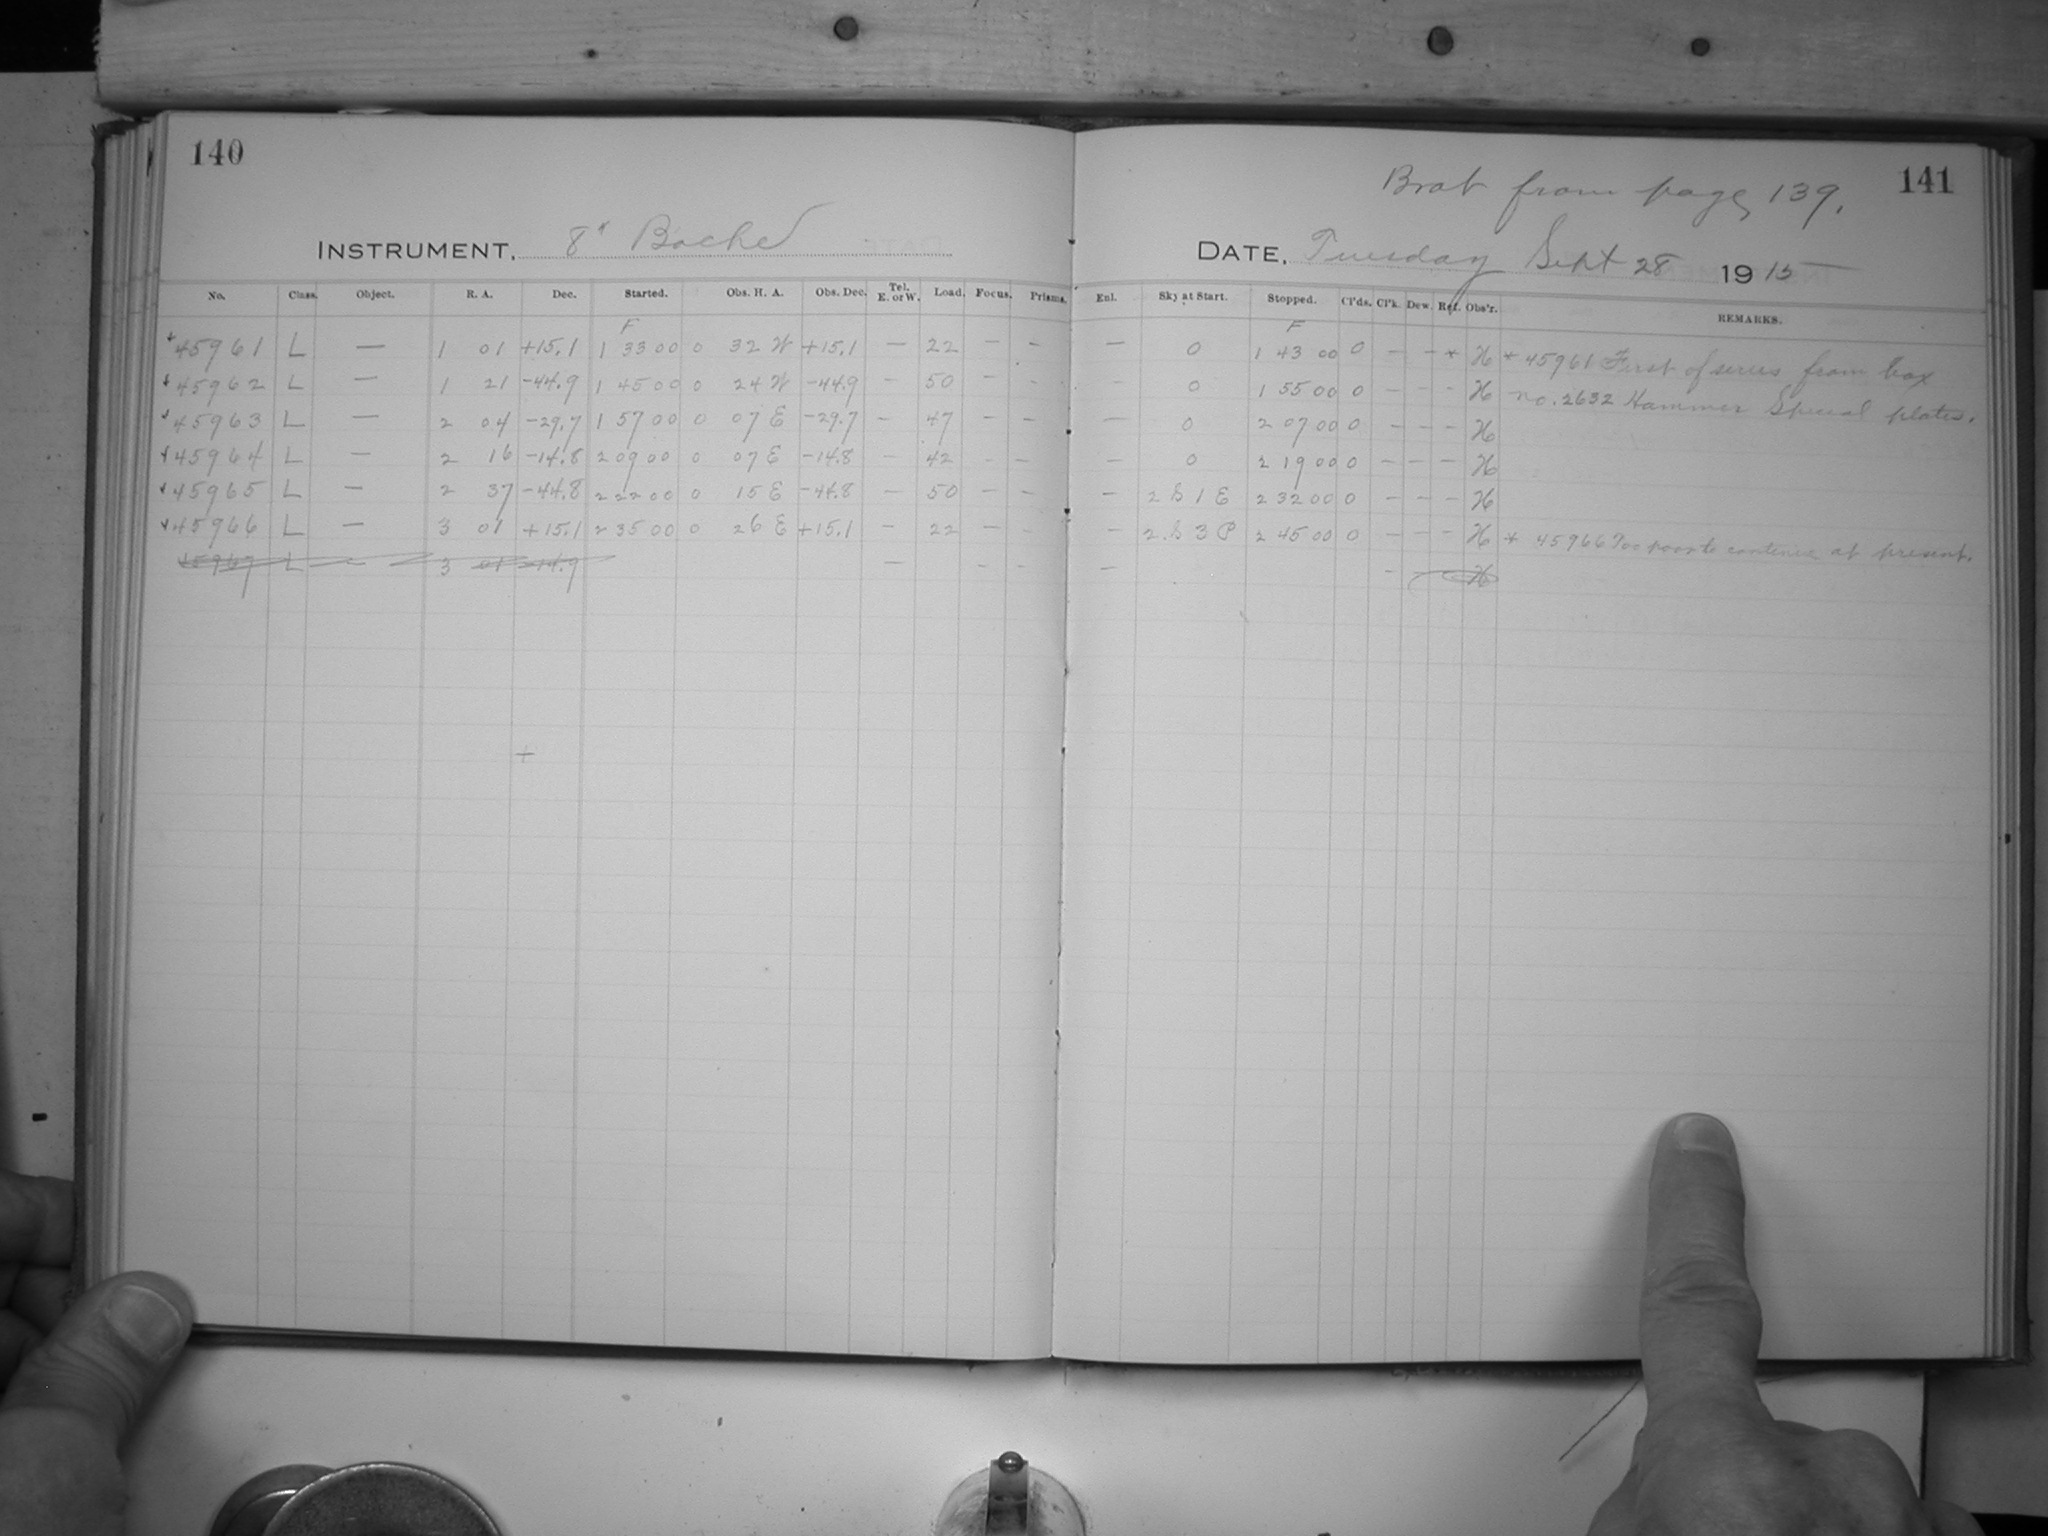 140
INSTRUMENT, 8" Bache
No. Class. Object. R. A. Dec. Started. Obs. H. A. Obs. Dec. Tel. E. or W. Load. Focus. Prisms.
F
45961 L — 1 01 +15.1 1 33 00 0 32 W +15.1 — 22 — —
45962 L — 1 21 -44.9 1 45 00 0 24 W -44.9 — 50 — —
45963 L — 2 04 -29.7 1 57 00 0 07 E -29.7 — 47 — —
45964 L — 2 16 -14.8 2 09 00 0 07 E -14.8 — 42 — —
45965 L — 2 37 -44.8 2 22 00 0 15 E -44.8 — 50 — —
45966 L — 3 01 +15.1 2 35 00 0 26 E +15.1 — 22 — —
45967 L — 3 01 -14.9 — — —
+
141
Brot from page 139.
DATE, Tuesday Sept 28 1915
Enl. Sky at Start. Stopped. Cl'ds. Cl'k. Dew. Ref. Obs'r. REMARKS.
F
— 0 1 43 00 0 — — * H * 45961 First of series from box
— 0 1 55 00 0 — — — H no. 2632 Hammer Special plates.
— 0 2 07 00 0 — — — H
— 0 2 19 00 0 — — — H
— 2 S 1 E 2 32 00 0 — — — H
— 2 S 3 P 2 45 00 0 — — — H * 45966 Too poor to continue at present.
— — H